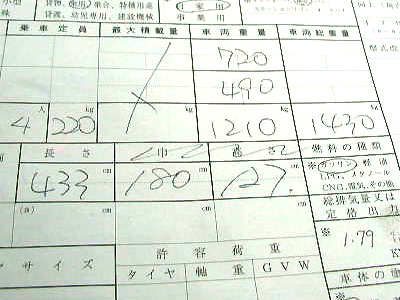 小型 貨物、乗用、乗合、特種用途
株 貨渡、幼児専用、建設機械
自家用
事業用
乗車定員 最大積載量 車両重量 車両総重量
720
490
4人 220kg kg 1210kg 1430kg
長さ 巾 高さ 燃料の種類
433cm 180cm 127cm
※ ガソリン 軽油
LPG、メタノール
CNG、電気、その他
総排気量又は
定格出力
※ 1.79
(a) cm cm cm
許容荷重
サイズ タイヤ 軸重 GVW
車体の塗